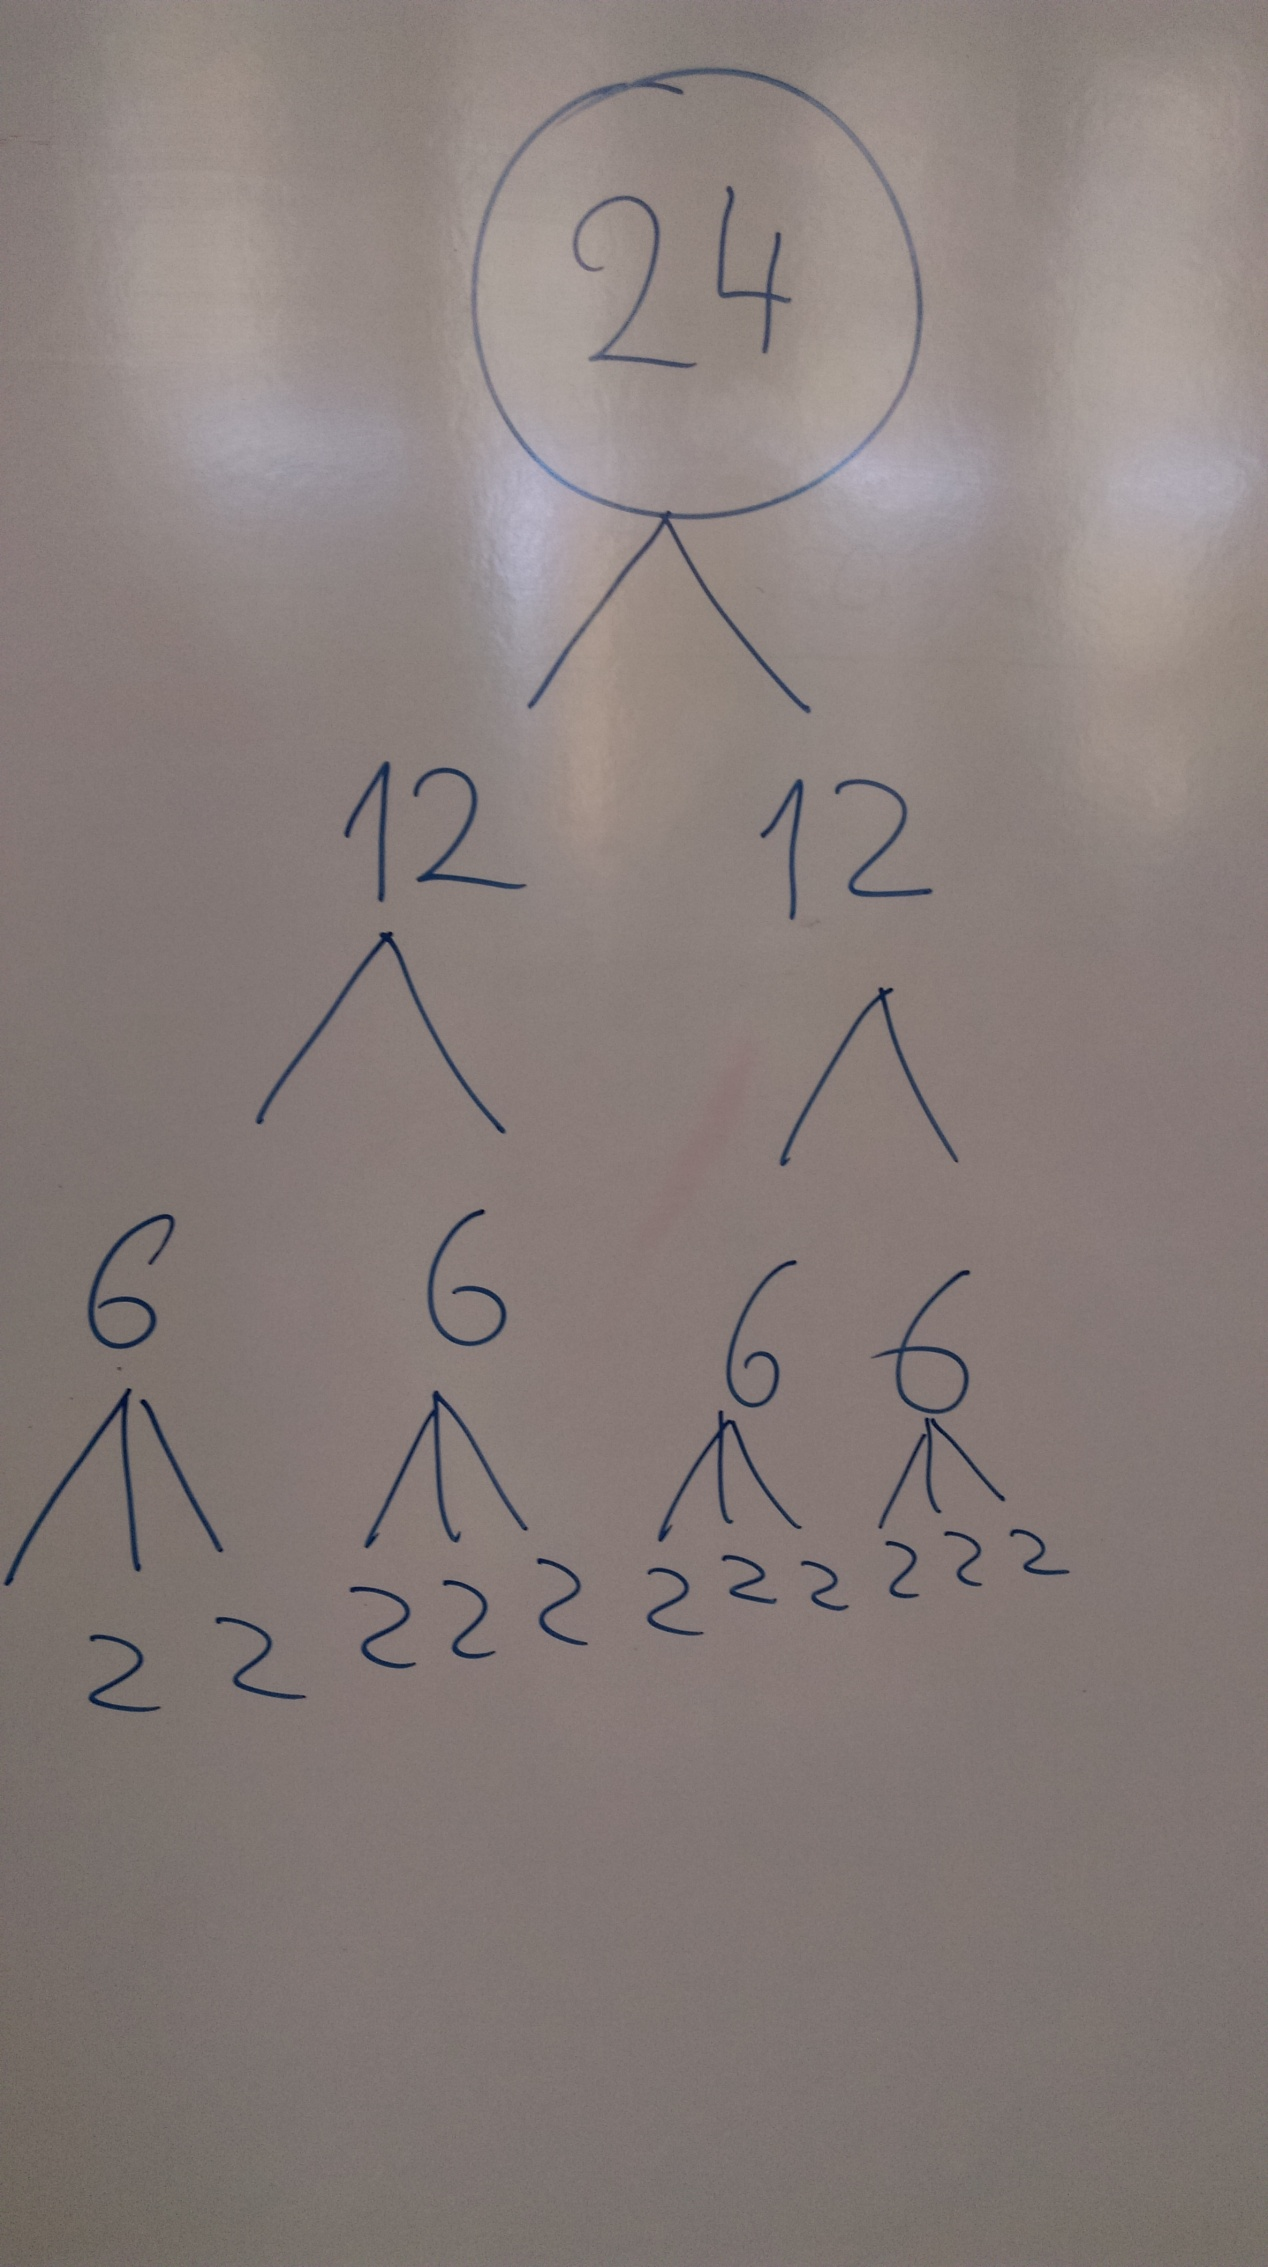 24
12 12
6 6 6 6
2 2 2 2 2 2 2 2 2 2 2